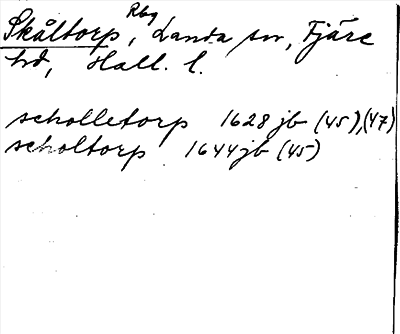 Skåltorp, Rbg Landa sn, Fjäre
hd, Hall. l.
scholletorp 1628 jb (45), (47)
scholtorp 1644 jb (45)